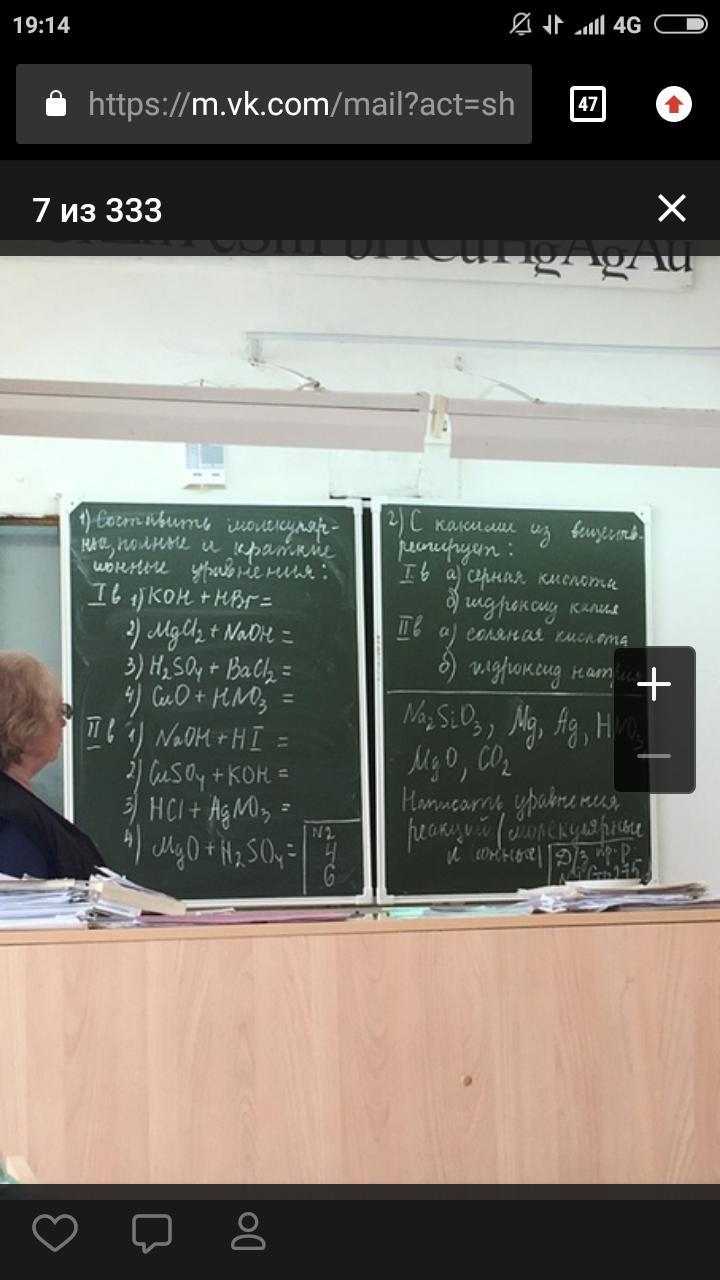 19:14
4G
https://m.vk.com/mail?act=sh
47
7 из 333
Cu Hg Ag Au
1) Составить молекуляр-
ные, полные и краткие
ионные уравнения:
I в 1) KOH + HBr =
2) MgCl₂ + NaOH =
3) H₂SO₄ + BaCl₂ =
4) CuO + HNO₃ =
II в 1) NaOH + HI =
2) CuSO₄ + KOH =
3) HCl + AgNO₃ =
4) MgO + H₂SO₄ =
N2
4
6
2) С какими из веществ
реагирует:
I в а) серная кислота
б) гидроксид калия
II в а) соляная кислота
б) гидроксид натрия
Na₂SiO₃, Mg, Ag, HNO₃
MgO, CO₂
Написать уравнения
реакций (молекулярные
и ионные)
Д/З